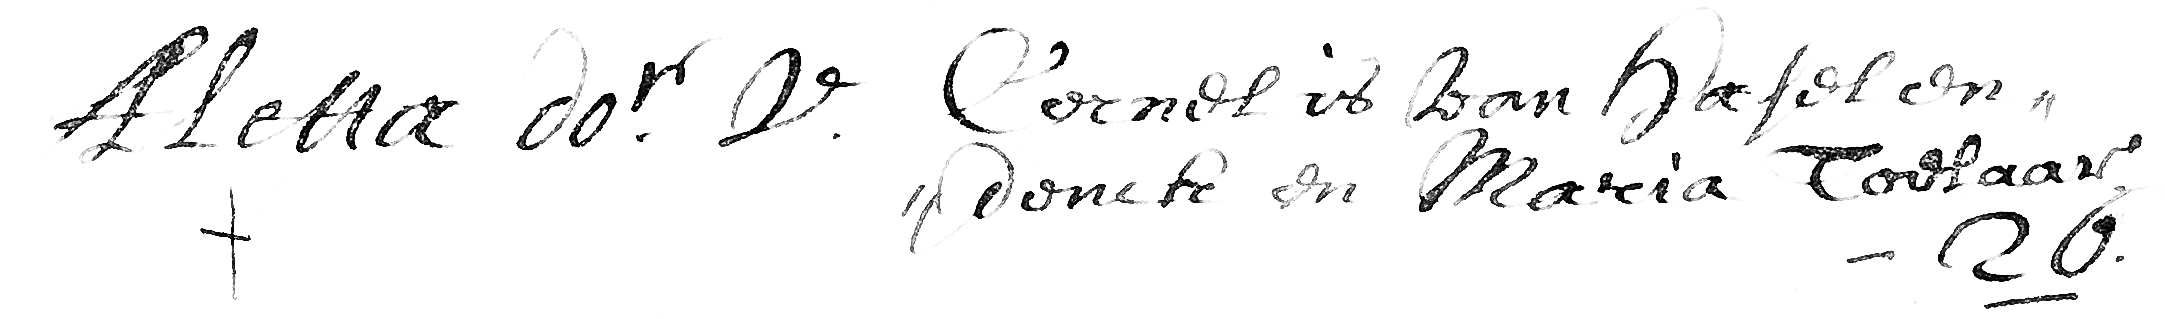 Aletta dor. Ve. Cornelis van Haselen„
„donck en Maria Toelaar.
- 26.